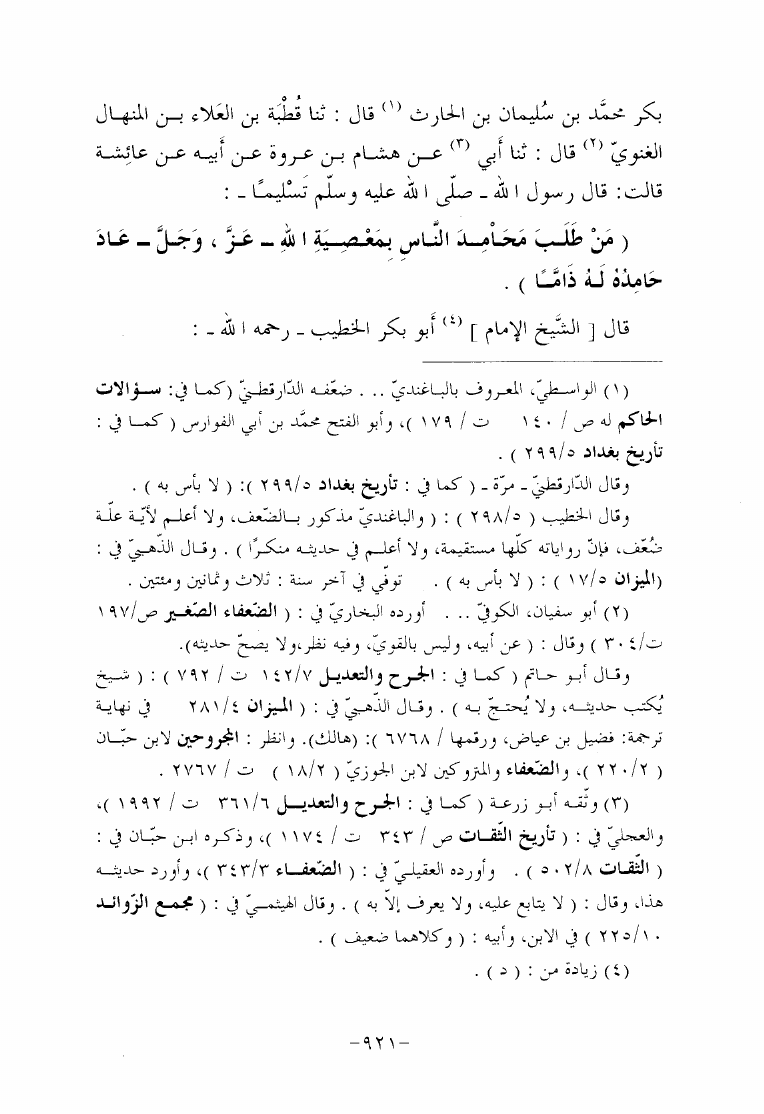 بكر محمَّد بن سُليمان بن الحارث (١) قال : ثنا قُطْبَة بن العَلاء بـن المنهال
الغنويّ (٢) قال : ثنا أَبي (٣) عـن هشـام بـن عـروة عـن أَبيه عـن عائِشـة
قالت: قال رسول الله ـ صلّى الله عليه وسلّم تَسْليمـًا ـ :
( مَنْ طَلَـبَ مَحَـامِـدَ النَّـاسِ بِمَعْـصِـيَـةِ اللهِ ـ عَـزَّ ، وَجَـلَّ ـ عَـادَ
حَامِدُهُ لَـهُ ذَامَّـًا ) .
قال [ الشَّيخ الإمام ] (٤) أبو بكر الخطيب ـ رحمه الله ـ :
(١) الواسـطيّ، المعـروف بالبـاغنديّ .. . ضعّفـه الدّارقطـنيّ (كمـا في: ســؤالات
الحاكم له ص / ١٤٠ ت / ١٧٩ )، وأبو الفتح محمَّد بن أبي الفوارس ( كمـا في :
تأريخ بغداد ٢٩٩/٥ ) .
وقال الدّارقطنيّ ـ مرّة ـ ( كما في : تأريخ بغداد ٢٩٩/٥ ): ( لا بأس به ) .
وقال الخطيب ( ٢٩٨/٥ ) : ( والباغنديّ مذكور بـالضّعف، ولا أعلـم لأيّـة علّـة
ضُعّف، فإنّ رواياته كلّها مستقيمة، ولا أعلـم في حديثـه منكـرًا ) . وقـال الذّهـبيّ في :
(الميزان ١٧/٥ ) : ( لا بأس به ) . توفّي في آخر سنة : ثلاث وثمانين ومئتين .
(٢) أبو سفيان، الكوفيّ .. . أورده البخاريّ في : ( الضّعفاء الصّغـير ص/١٩٧
ت/٣٠٤ ) وقال : ( عن أبيه، وليس بالقويّ، وفيه نظر،ولا يصحّ حديثه).
وقال أبـو حـاتم ( كمـا في : الجرح والتعديـل ١٤٢/٧ ت / ٧٩٢ ) : ( شـيخ
يُكتب حديثـه، ولا يُحتـجّ بـه ) . وقـال الذّهـبيّ في : ( المـيزان ٢٨١/٤ في نهايـة
ترجمة: فضيل بن عياض، ورقمها / ٦٧٦٨ ): (هالك). وانظر : المجروحين لابن حبّـان
( ٢٢٠/٢ )، والضّعفاء والمتروكين لابن الجوزيّ ( ١٨/٢ ) ت / ٢٧٦٧ .
(٣) وثّقـه أبـو زرعـة ( كمـا في : الجـرح والتعديــل ٣٦١/٦ ت / ١٩٩٢ )،
والعجليّ في : ( تأريخ الثّقـات ص / ٣٤٣ ت / ١١٧٤ )، وذكـره ابـن حبّـان في :
( الثّقات ٥٠٢/٨ ) . وأورده العقيلـيّ في : ( الضّعفـاء ٣٤٣/٣ )، وأورد حديثـه
هذا، وقال : ( لا يتابع عليه، ولا يعرف إلاّ به ) . وقال الهيثمـيّ في : ( مجمـع الزّوائـد
٢٢٥/١٠ ) في الابن، وأبيه : ( وكلاهما ضعيف ) .
(٤) زيادة من : ( د ) .
-٩٢١-